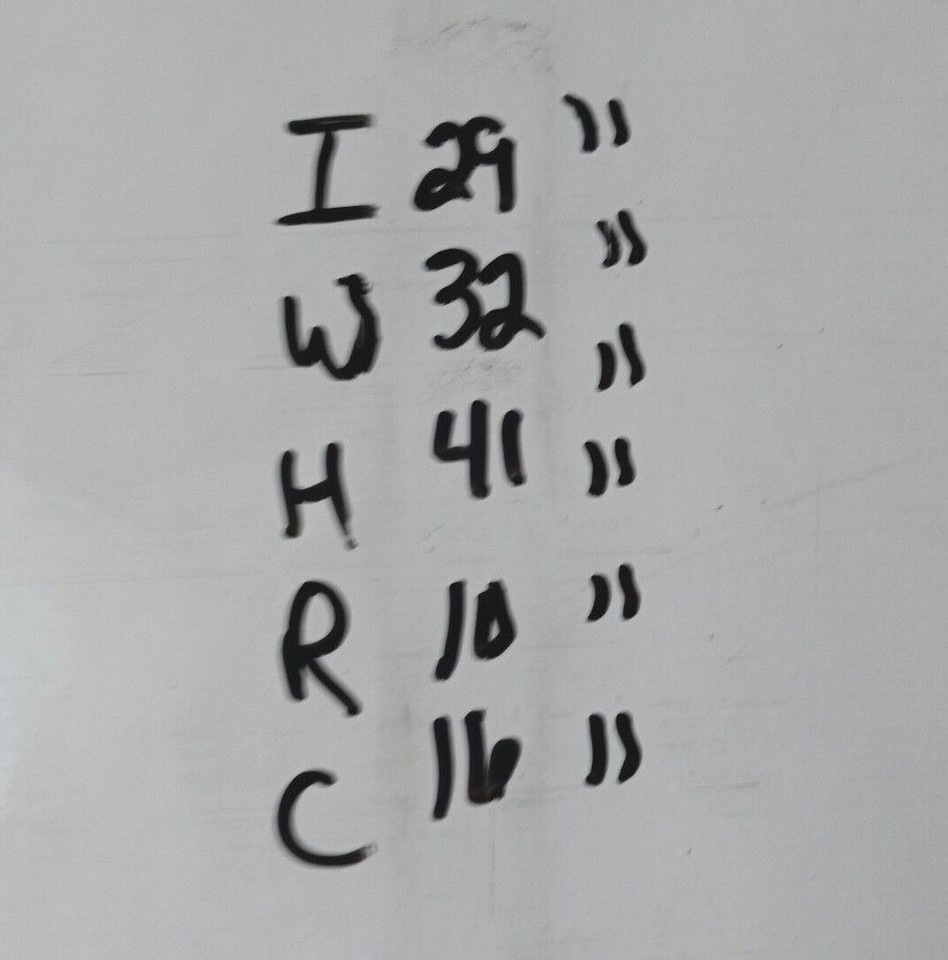 I 29 "
W 32 "
"
H 41 "
R 10 "
C 16 "